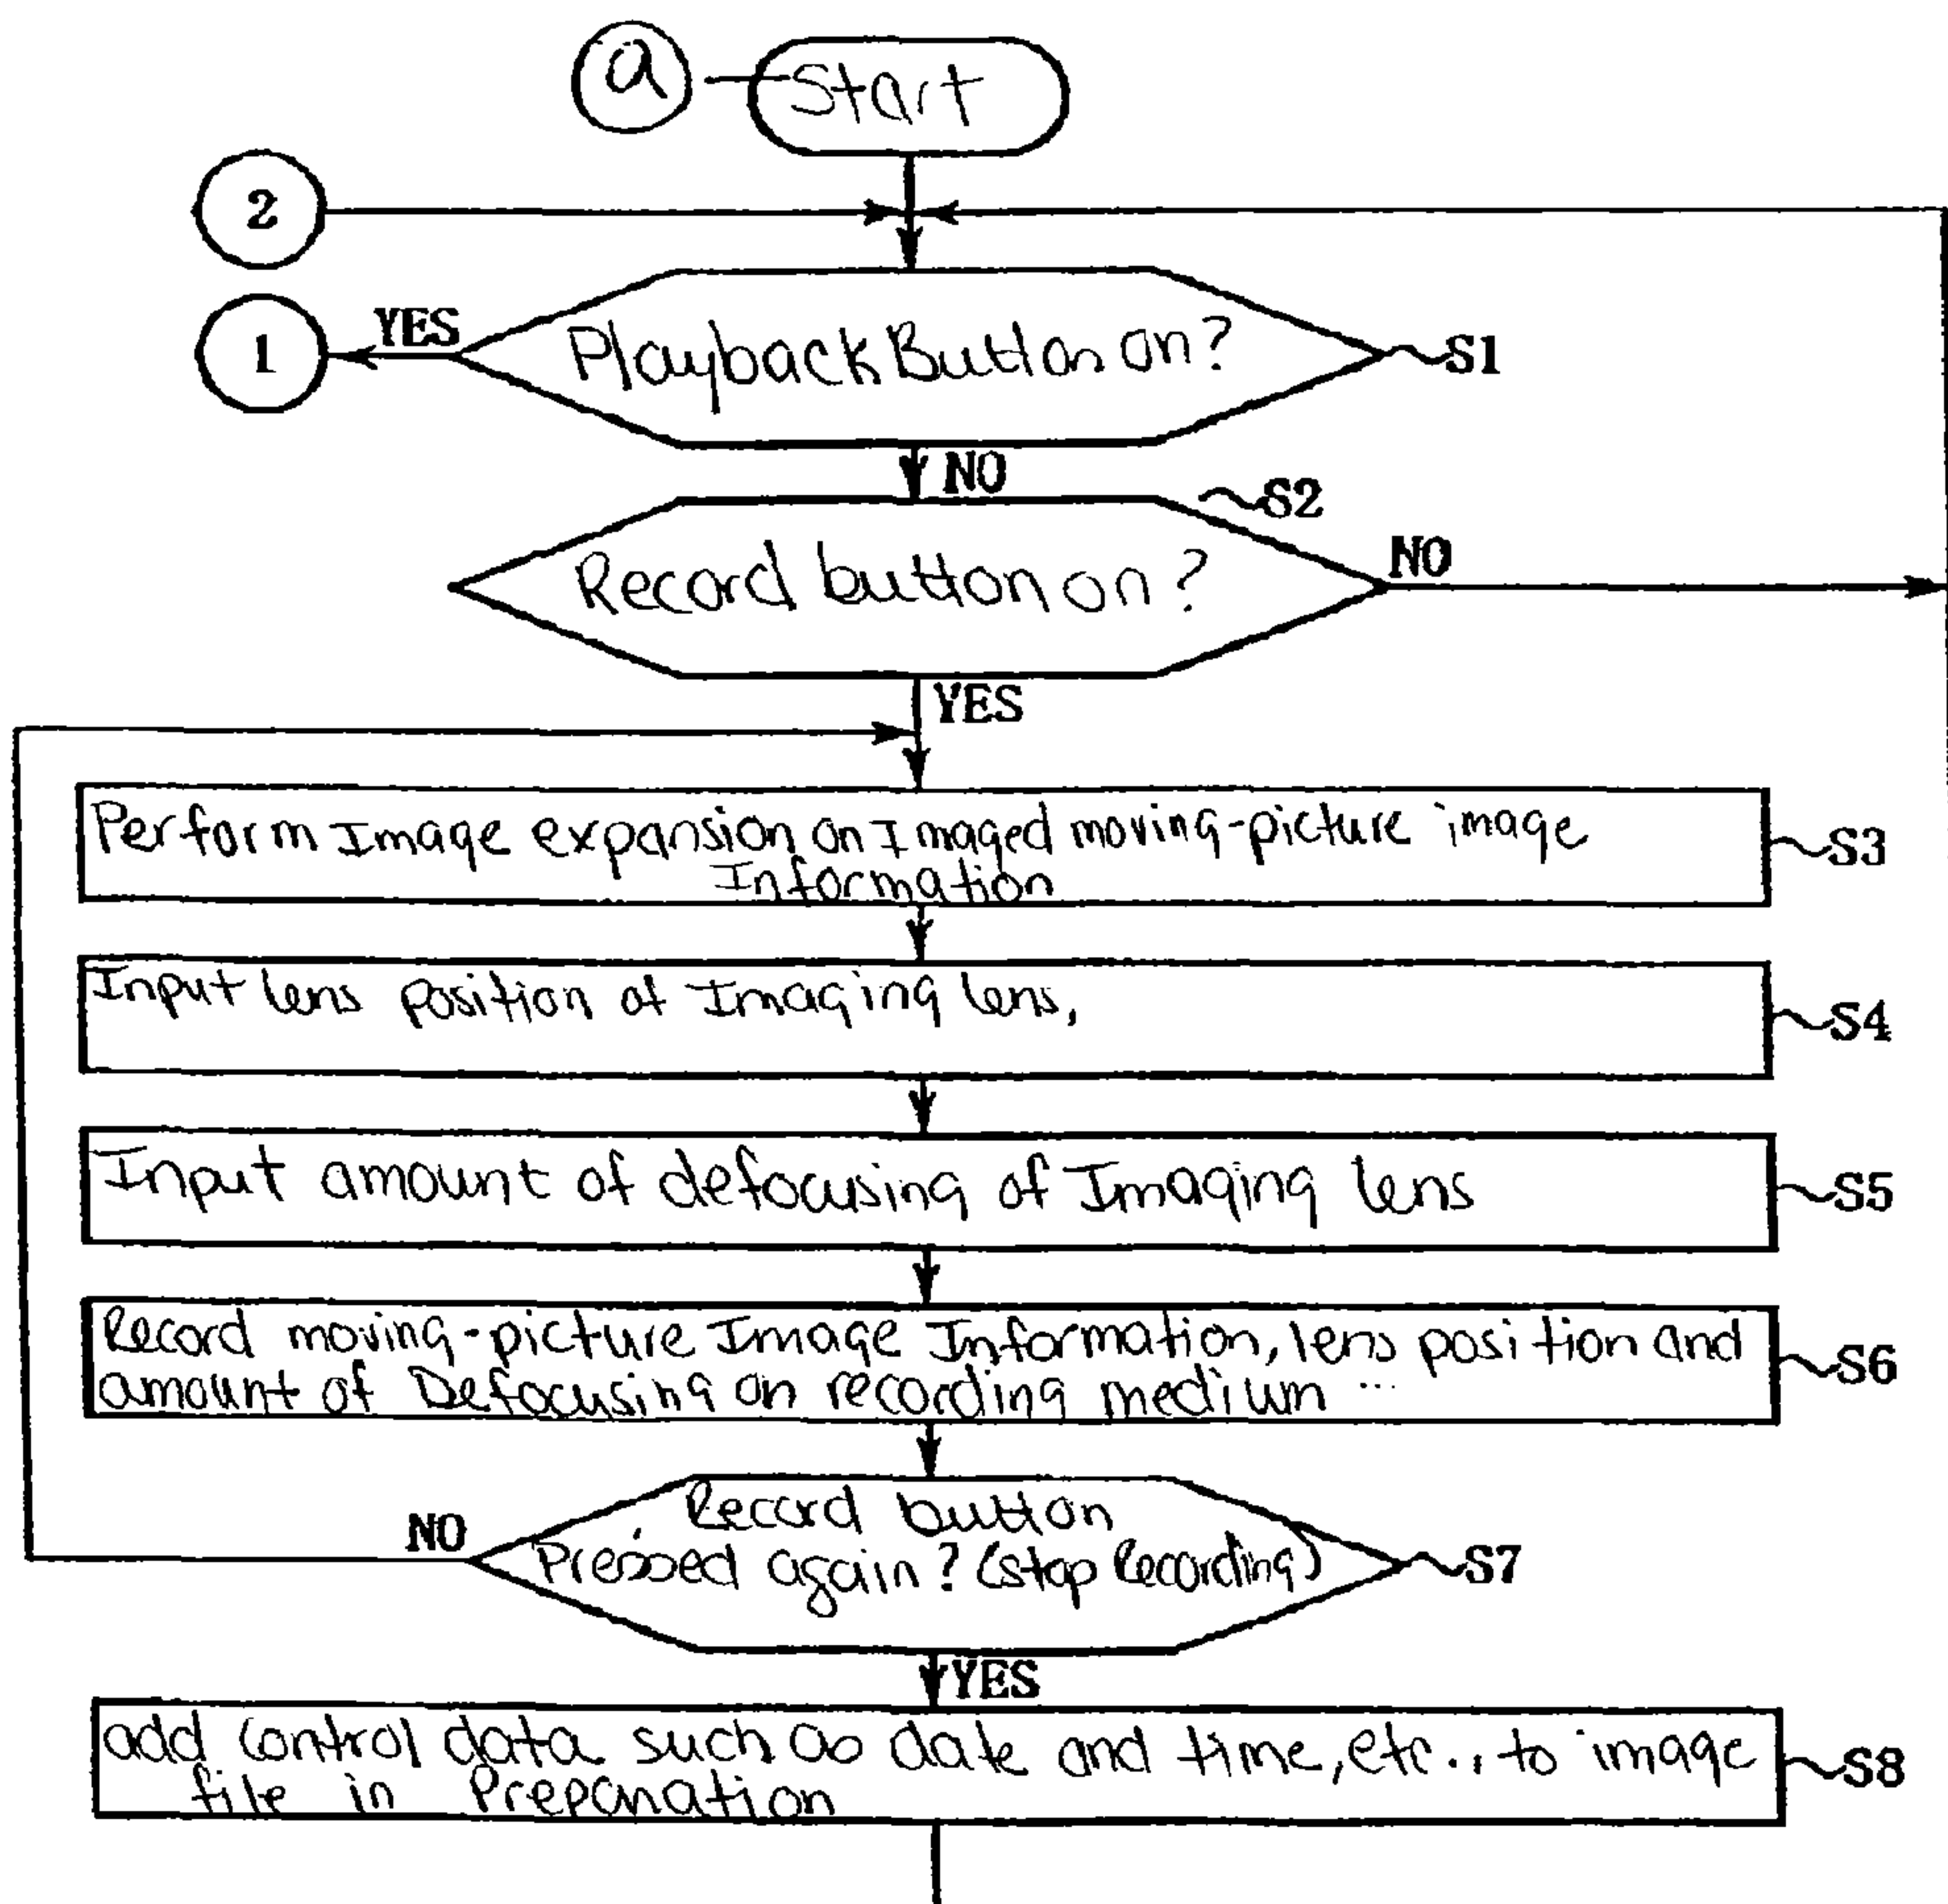 a
Start
2
1
YES
Playback Button on?
S1
NO
S2
Record button on?
NO
YES
Perform Image expansion on Imaged moving-picture image
Information
S3
Input lens position of Imaging lens,
S4
Input amount of defocusing of Imaging lens
S5
Record moving-picture Image Information, lens position and
amount of Defocusing on recording medium ...
S6
Record button
NO
Pressed again? (stop Recording)
S7
YES
add control data such as date and time, etc., to image
file in Preparation
S8